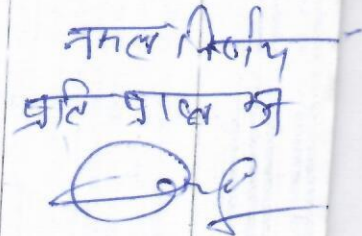 नकल निर्णय
प्रति प्राप्त की